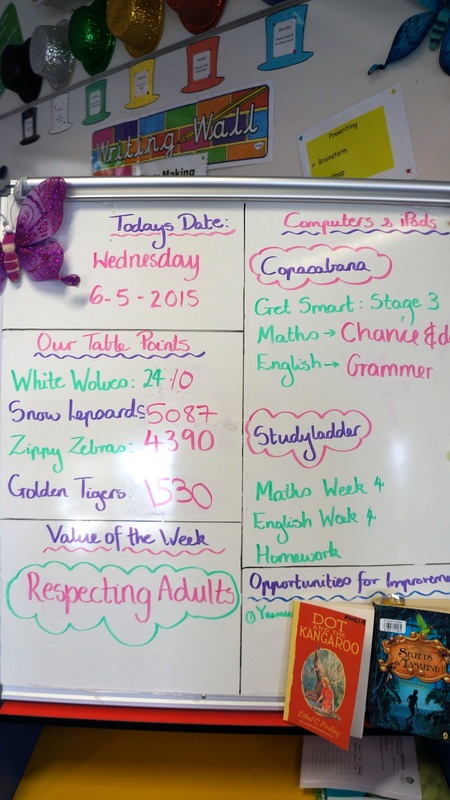 Writing Wall
Making
Prewriting
Brainstorm
Todays Date:
Wednesday
6-5-2015
Our Table Points
White Wolves: 2410
Snow Lepoards: 5087
Zippy Zebras: 4390
Golden Tigers: 1530
Value of the Week
Respecting Adults
Computers & iPods
Copacabana
Get Smart: Stage 3
Maths → Chance & d
English → Grammer
Studyladder
Maths Week 4
English Week 4
Homework
Opportunities for Improveme
DOT
AND THE
KANGAROO
Ethel C. Pedley
SECRETS
OF TAMARIND